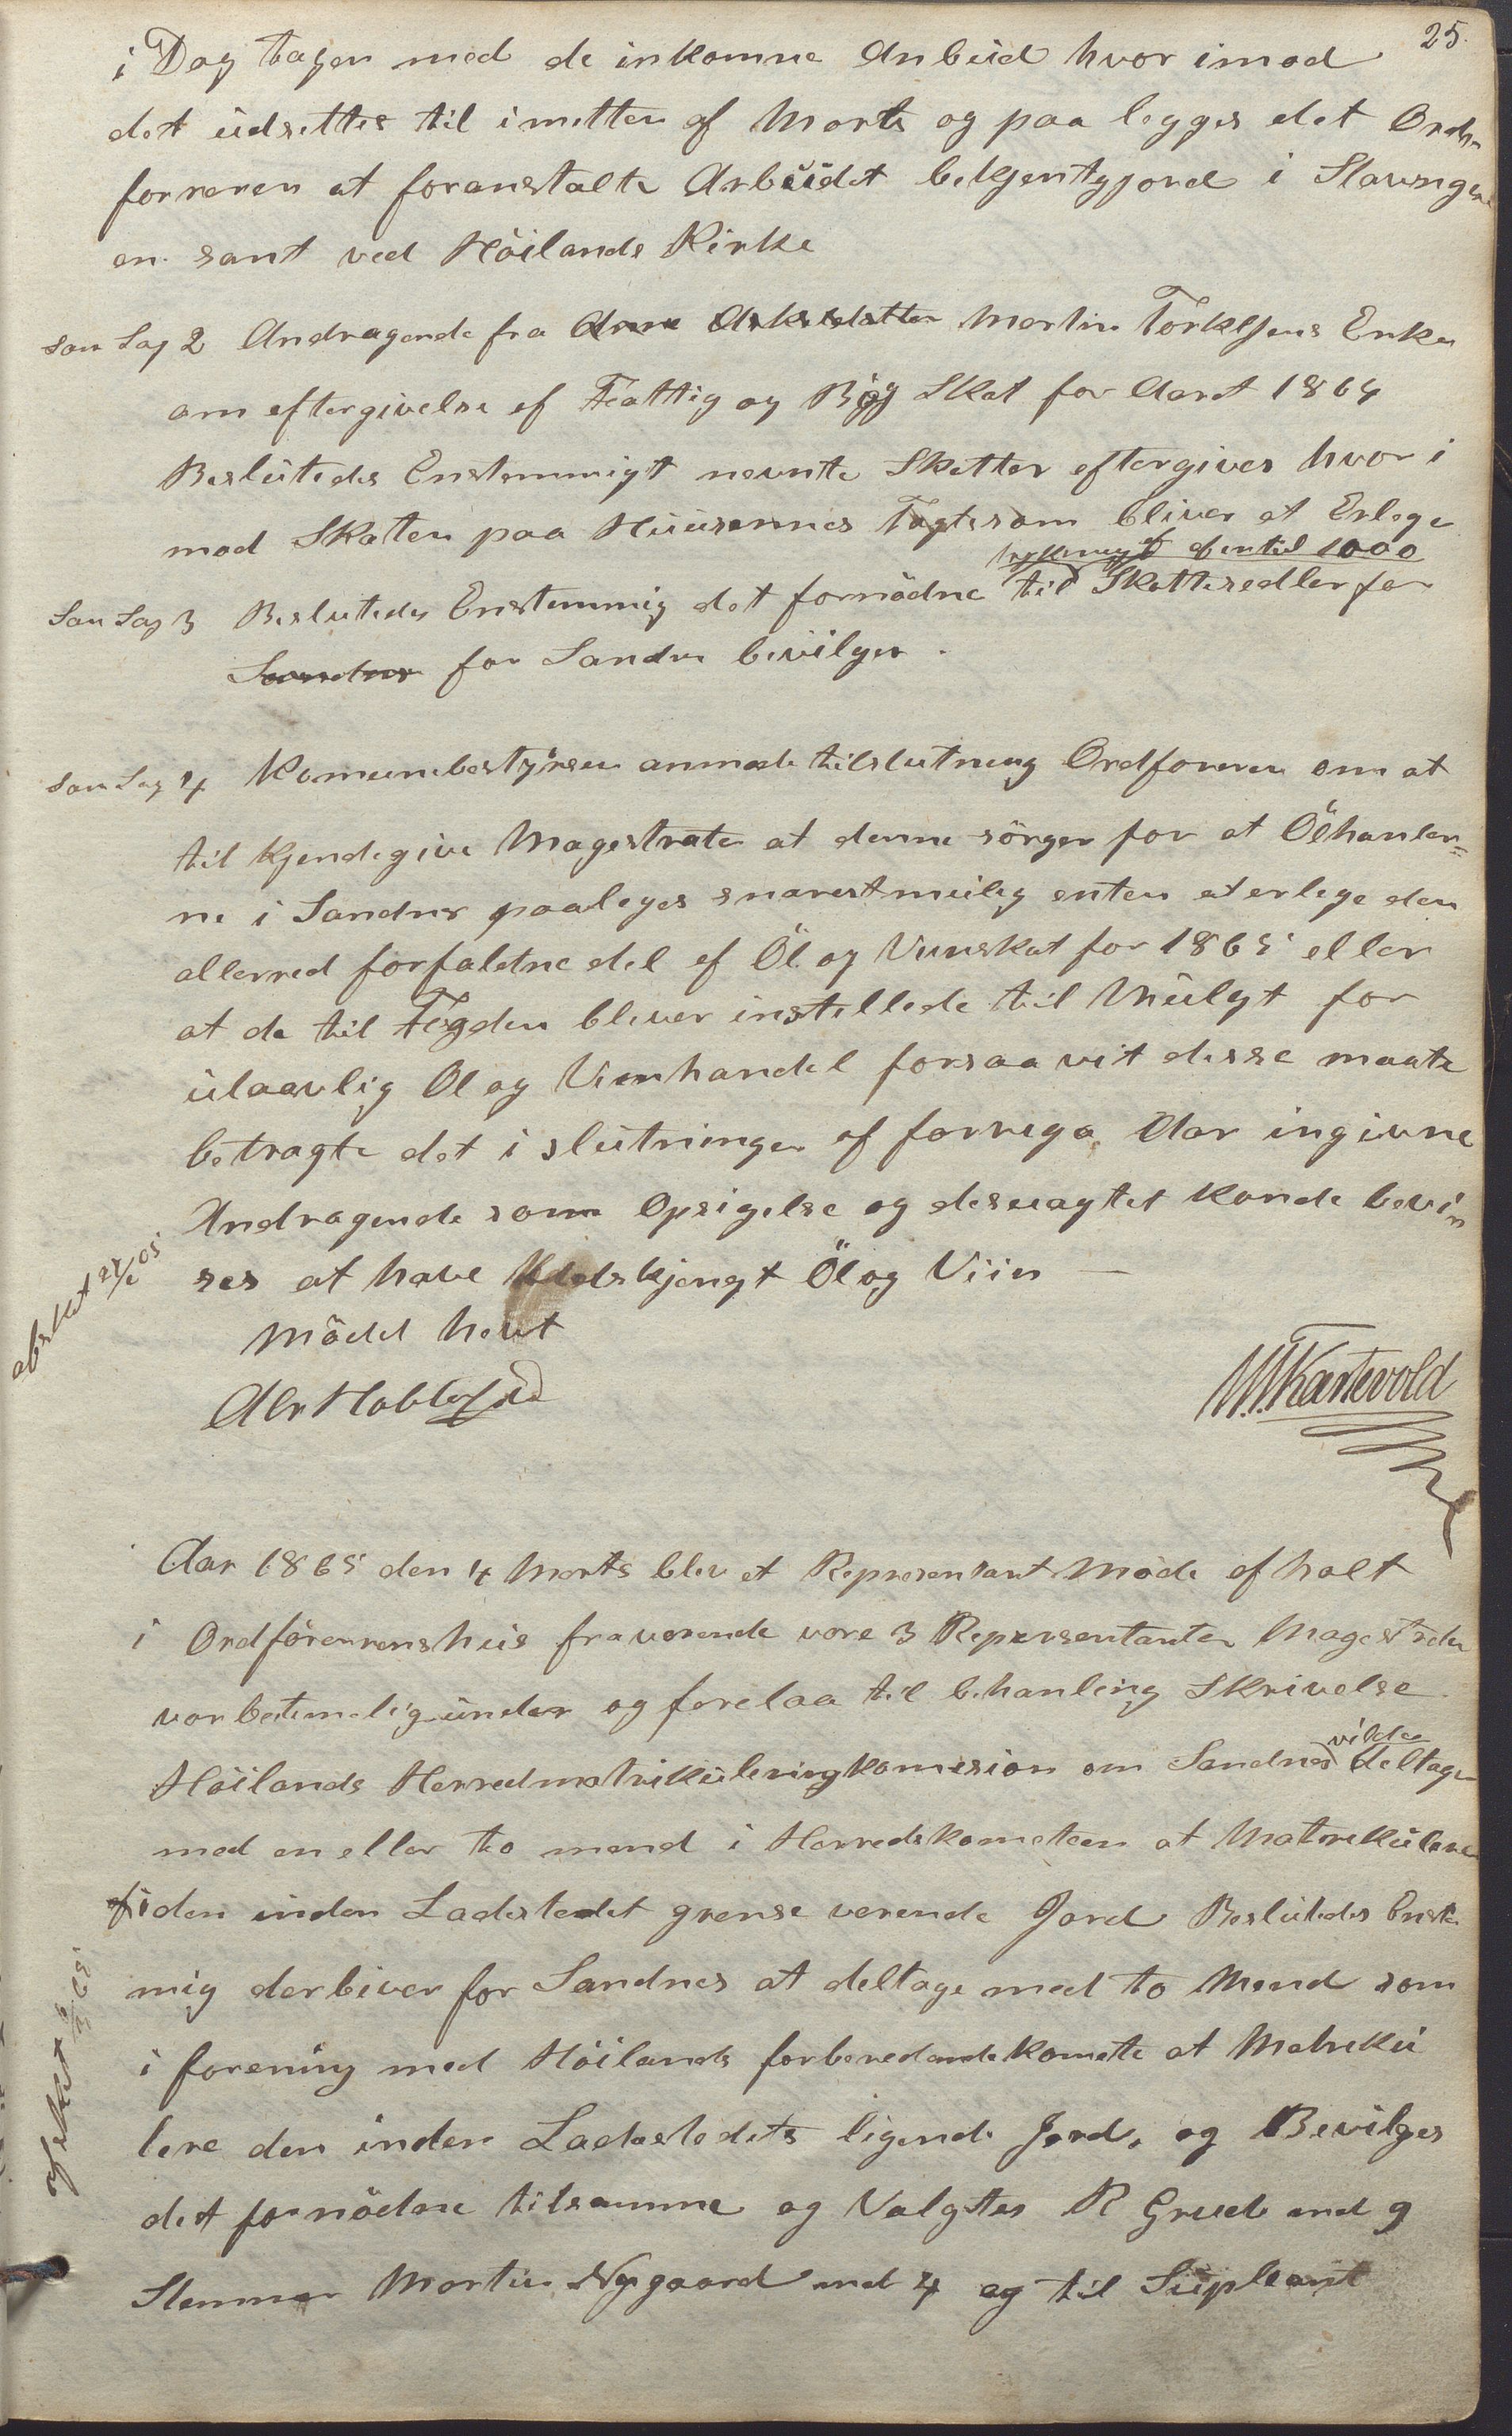 25.
i Dag tagen med de inkomne Anbud hvor imod
det udsettes til imitten af Marts og paa legges det Ord-
forreren at foranstalte Arbeidet bekjentgjord i Stavanger
en sant ved Höilands Kirke
som Sag 2 Andragende fra Martin Torkelsens Enke
om eftergivelse af Fattig og Byg Skat for Aaret 1864
Beslutedes Enstemmigt nevnte Skatter eftergives hvor i
mod Skaten paa Huusennes Tagt som bliver at Erlege
dertil 1000
Som Sag 3 Beslutedes Enstemmig det fornödne til Skattesedler for
Sandnes for Sandnes bevilges.
som Sag 4 Komunebestyrsen anmode tilslutning Ordforeren om at
til kjendegive Magestraten at denne sörger for at Ölhanler=
ne i Sandnes paaleges snarestmulig enten at erlege den
allerred forfaldne del af Öl og Viinskat for 1865 eller
at de til Fogden bliver instellede til Mulgt for
ulaavlig Öl og Viinhandel forsaavit disse maate
betragte det i slutningen af forrige Aar ingivne
Andragende som Opsigelse og desuagtet kande bevi=
ses at have Udskjengt Öl og Viin —
Mödet hevt
W. Kartevold
Aar 1865 den 4 Marts blev et Representant Möde afholt
i Ordförerenshus fraværende vare 3 Repersentanter Magestraten
var betimelig under og forelaa til behanling Skrivelse
Höilands Herredmatrikuleringkomision om Sandnes vilde deltage
med en eller to mend i Herredskometeen at Matrekulere
den inden Ladestedet grense verende Jord Beslutedes Enste
mig der bliver for Sandnes at deltage med to Mend som
i forening med Höilands forberedende komete at Matreku
lere den inden Ladestedets ligende Jord, og Bevilges
det fornödne tilsamme og Valgtes R Grude med 9
Stemmer Martin Nygaard med 4 og til Supleant